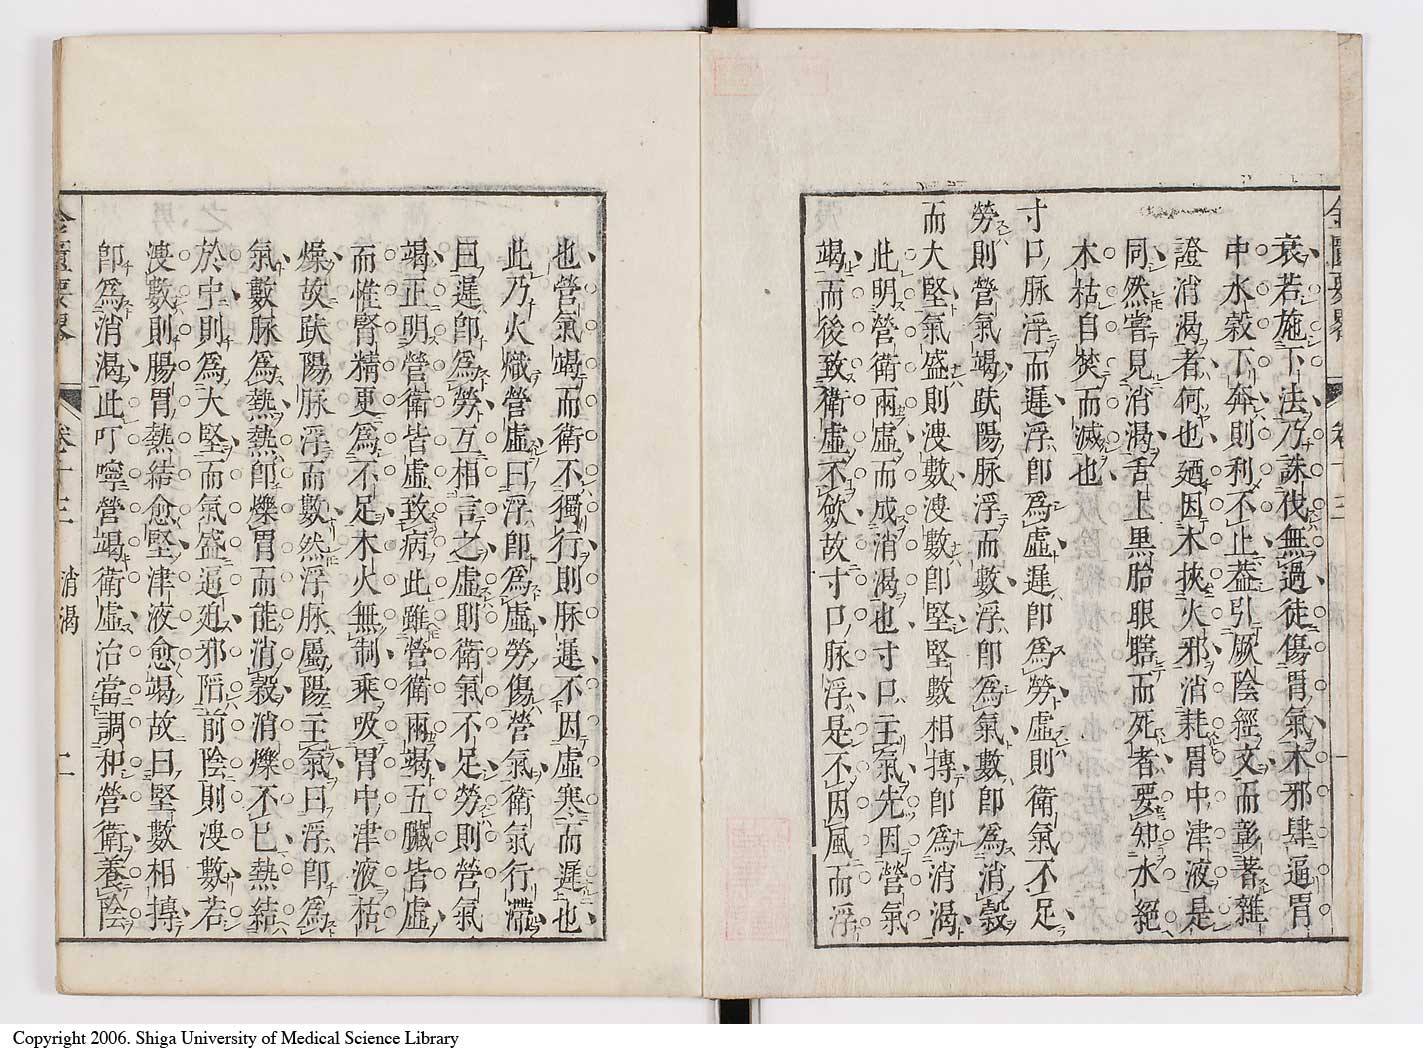 衰若施下法乃誅伐無過徒傷胃氣木邪肆逼胃
中水穀下奔則利不止葢引厥陰經文而彰著雜
證消渴者何也廼因木挾火邪消耗胃中津液是
同然嘗見消渴舌上黑胎眼瞎而死者要知水絕
木枯自焚而滅也
寸口脉浮而遲浮卽爲虛遲卽爲勞虛則衛氣不足
勞則營氣竭趺陽脉浮而數浮卽爲氣數卽爲消穀
而大堅氣盛則溲數溲數卽堅堅數相摶卽爲消渴
此明營衛兩虛而成消渴也寸口主氣先因營氣
竭而後致衛虛不歛故寸口脉浮是不因風而浮
也營氣竭而衛不獨行則脉遲不因虛寒而遲也
此乃火熾營虛曰浮卽爲虛勞傷營氣衛氣行滯
曰遲卽爲勞互相言之虛則衛氣不足勞則營氣
竭正明營衛皆虛致病此雖營衛兩竭五臟皆虛
而惟腎精更爲不足木火無制乘吸胃中津液枯
燥故趺陽脉浮而數然浮脉屬陽主氣曰浮卽爲
氣數脉爲熱熱卽爍胃而能消穀消爍不已熱結
於中則爲大堅而氣盛逼廹邪陷前陰則溲數若
溲數則腸胃熱結愈堅津液愈竭故曰堅數相摶
卽爲消渴此叮嚀營竭衛虛治當調和營衛養陰
金匱要畧
卷十三
消渴
二
Copyright 2006. Shiga University of Medical Science Library